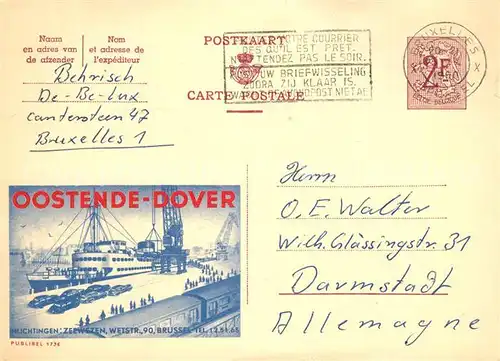 Naam
en adres van
de afzender
Nom
et adresse de
l'expéditeur
Behrisch
De-Be-Lux
cantersteen 47
Bruxelles 1
POSTKAART
CARTE POSTALE
VOTRE COURRIER
DES QU'IL EST PRET.
N'ATTENDEZ PAS LE SOIR.
UW BRIEFWISSELING
ZODRA ZIJ KLAAR IS.
BRUXELLES
BRUSSEL
2F
OOSTENDE-DOVER
INLICHTINGEN: ZEEWEZEN, WETSTR., 90, BRUSSEL-TEL. 12.51.65
PUBLIBEL 1736
Herrn
O. E. Walter
Wilh. Glässingstr. 31
Darmstadt
Allemagne